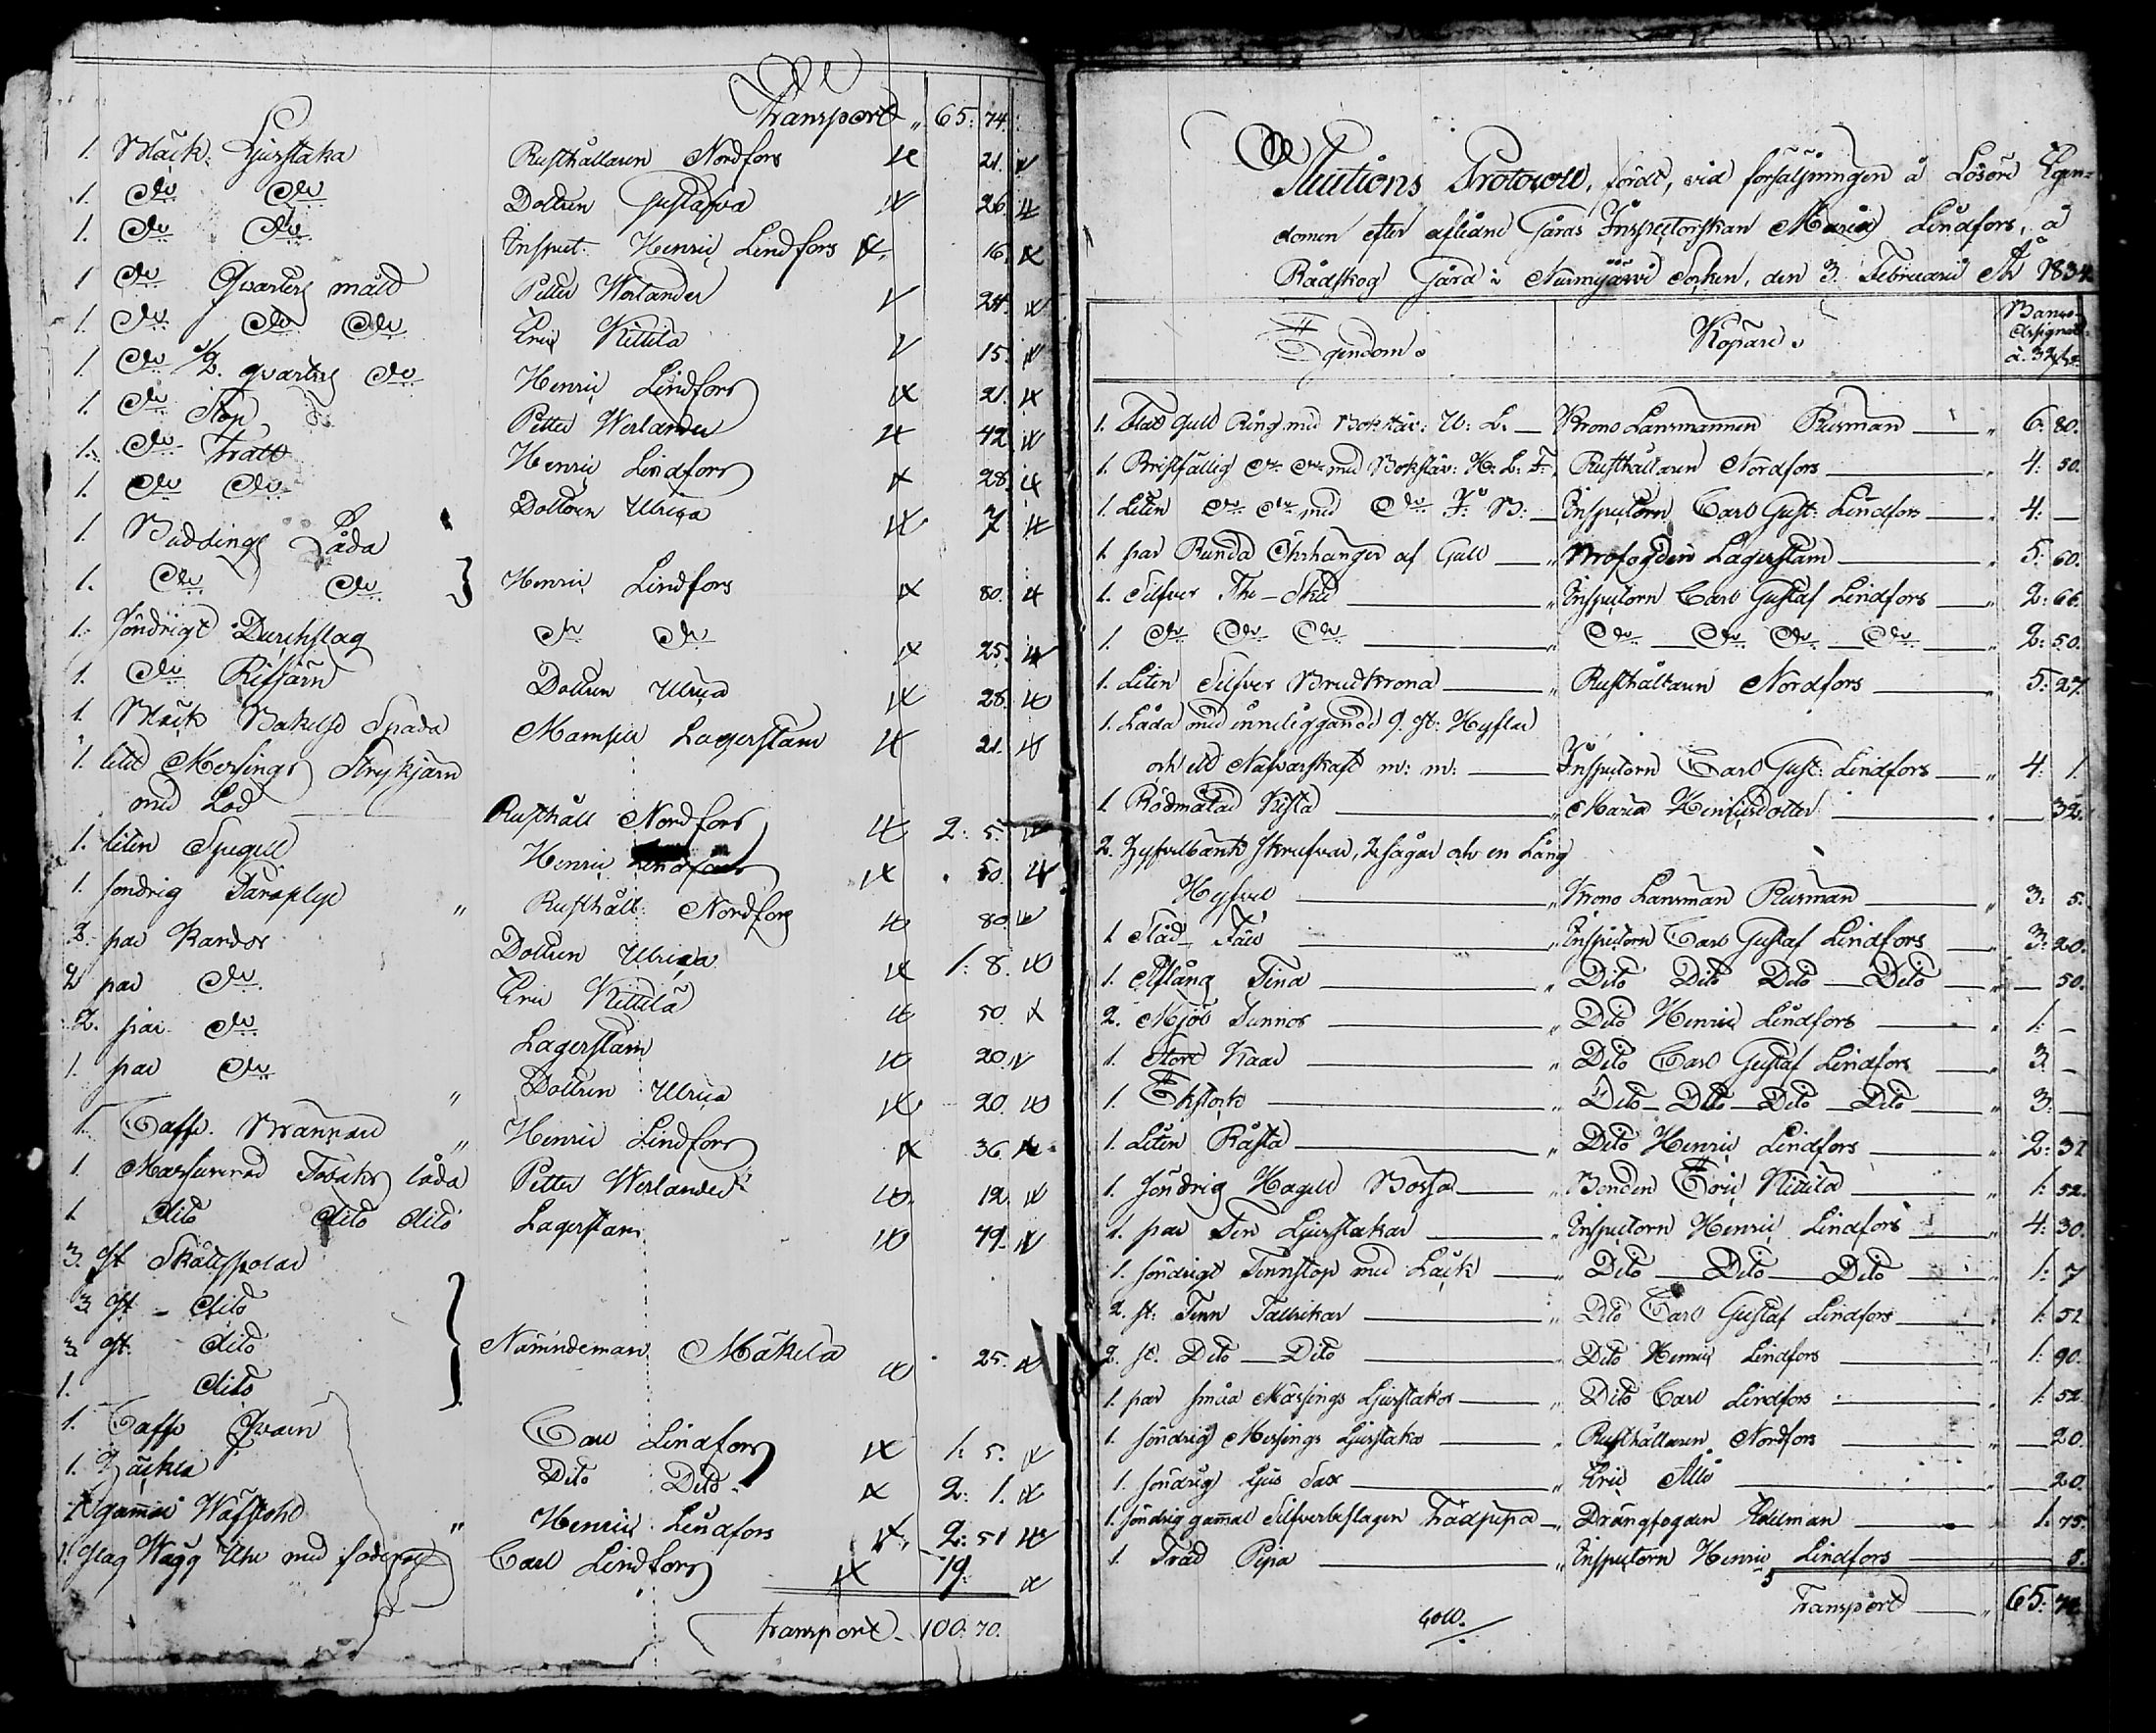 Transport „ 65: 74.
1. Bläck: Ljusstaka Rusthållaren Nordfors 21.
1. Dto Dto Dottren Gustafva 26.
1. Dto Dto Inspect. Henric Lindfors 16.
1 Dto Qvarters mått Petter Werlander 24.
1. Dto Dto Dto Eric Kittilä 15.
1. Dto 1/2. qvarters Dto Henric Lindfors 21.
1. Dto Stop Petter Werlander 42.
1. Dto Tratt Henric Lindfors 28.
1. Dto Dto Dottren Ulrica 7
1 Puddings Låda
1. Dto Dto Henric Lindfors 80.
1. söndrigt Durchslag Dto Dto 25.
1. Dto Rifjärn Dottren Ulrica 28.
1 Bläck Bakelse Spada Mamsell Lagerstam 21.
1. litet Messings Strykjärn
med Lod Rusthåll Nordfors 2: 5.
1. liten Spegell Henric Lindfors 50.
1. söndrig Rusthåll: Nordfors 80.
2. par Kardor Dottren Ulrica 1: 8.
2 par Dto Eric Kittilä 50.
2. par Dto Lagerstam 20.
1. par Dto „ Dottren Ulrica 20.
1. Caffe. Brännare „ Henric Lindfors 36.
1. Tobaks låda Petter Werlander 12.
1. dito dito dito Lagerstam 79.
3. st Skällspolar
3. st - dito
3 st. dito Nämndeman Mäkelä 25.
1. dito
1. Caffe Qvarn Carl Lindfors 1: 5.
1. Häckla Dito Dito 2: 1.
1 gammal Wäfstohl „ Henric Lindfors 2: 51
1. slag Wägg Uhr med foderal Carl Lindfors 19.
transport. 100: 70.
Auctions Protocoll, fördt, vid försäljningen å Lösöre Egen=
domen efter aflidne Gårds Inspectorskan Maria Lindfors, å
Rådskog Gård i Nurmijärvi Socken, den 3. Februarii År 1834
Egendom. Köpare. Banco Assignat: à 32 s:
1. Slät Guld Ring med Bokstäv: U: L. — Krono Länsmannen Rusman — „ 6: 80.
1. Bristfällig Dto Dto med Bokstäv: H: L: F: Rusthållaren Nordfors — „ 4: 50.
1. Liten Dto Dto med Dto J: B: — Inspectorn Carl Gust: Lindfors — „ 4: —
1. par Runda Öhrhängen af Gull — „ Brofogden Lagerstam — „ 5: 60.
1. Silfver The-Sked — „ Inspectorn Carl Gustaf Lindfors — „ 2: 66.
1. Dto Dto Dto — „ Dto — Dto Dto — Dto — „ 2: 50.
1. Liten Silfver Brudkrona — „ Rusthållaren Nordfors — „ 5: 27.
1. Låda med inneliggande 9. st: Hyflar
och ett Nafvarskaft m: m: — Inspectorn Carl Gust: Lindfors — „ 4: 1.
1 Rödmålad Kista — „ Maria Henricsdotter — „ — 32.
2. Hyfvelbänk skrufvar, 2 sågar och en Lång
Hyfvel — „ Krono Länsman Rusman — „ 3: 5.
1 Städ — „ Inspectorn Carl Gustaf Lindfors — 3: 20.
1. Aflång Tina — „ Dito Dito Dito — Dito — „ — 50.
2. Mjöl Tunnor — „ Dito Henric Lindfors — „ 1: —
1. Stort Kaar — „ Dito Carl Gustaf Lindfors — „ 3 —
1. Ekstock — „ Dito — Dito — Dito — Dito — „ 3: —
1. Liten — „ Dito Henric Lindfors — „ 2: 32
1. söndrig Hagell Bössa — „ Bonden Eric Kittilä — „ 1: 52.
1. par Ten Ljusstakar — „ Inspectorn Henric Lindfors — „ 4: 30.
1. söndrigt Tennstop med Läck — „ Dito — Dito — Dito — „ 1: 7
2. st: Tenn Tallrickar — „ Dito Carl Gustaf Lindfors — „ 1: 52
2. st. Dito — Dito — „ Dito Henric Lindfors — „ 1: 90.
1. par små Mässings Ljusstakor — „ Dito Carl Lindfors — „ 1: 52
1. söndrig Messings Ljusstaka — „ Rusthållaren Nordfors — „ — 20.
1. söndrig Ljus Sax — „ Eric — „ — 20.
1. söndrig gammal Silfverbeslagen Trädpipa — „ Drängfogden Edelman — „ 1: 75.
1. Träd Pipa — „ Inspectorn Henric Lindfors — 8.
Transport — „ 65: 74.